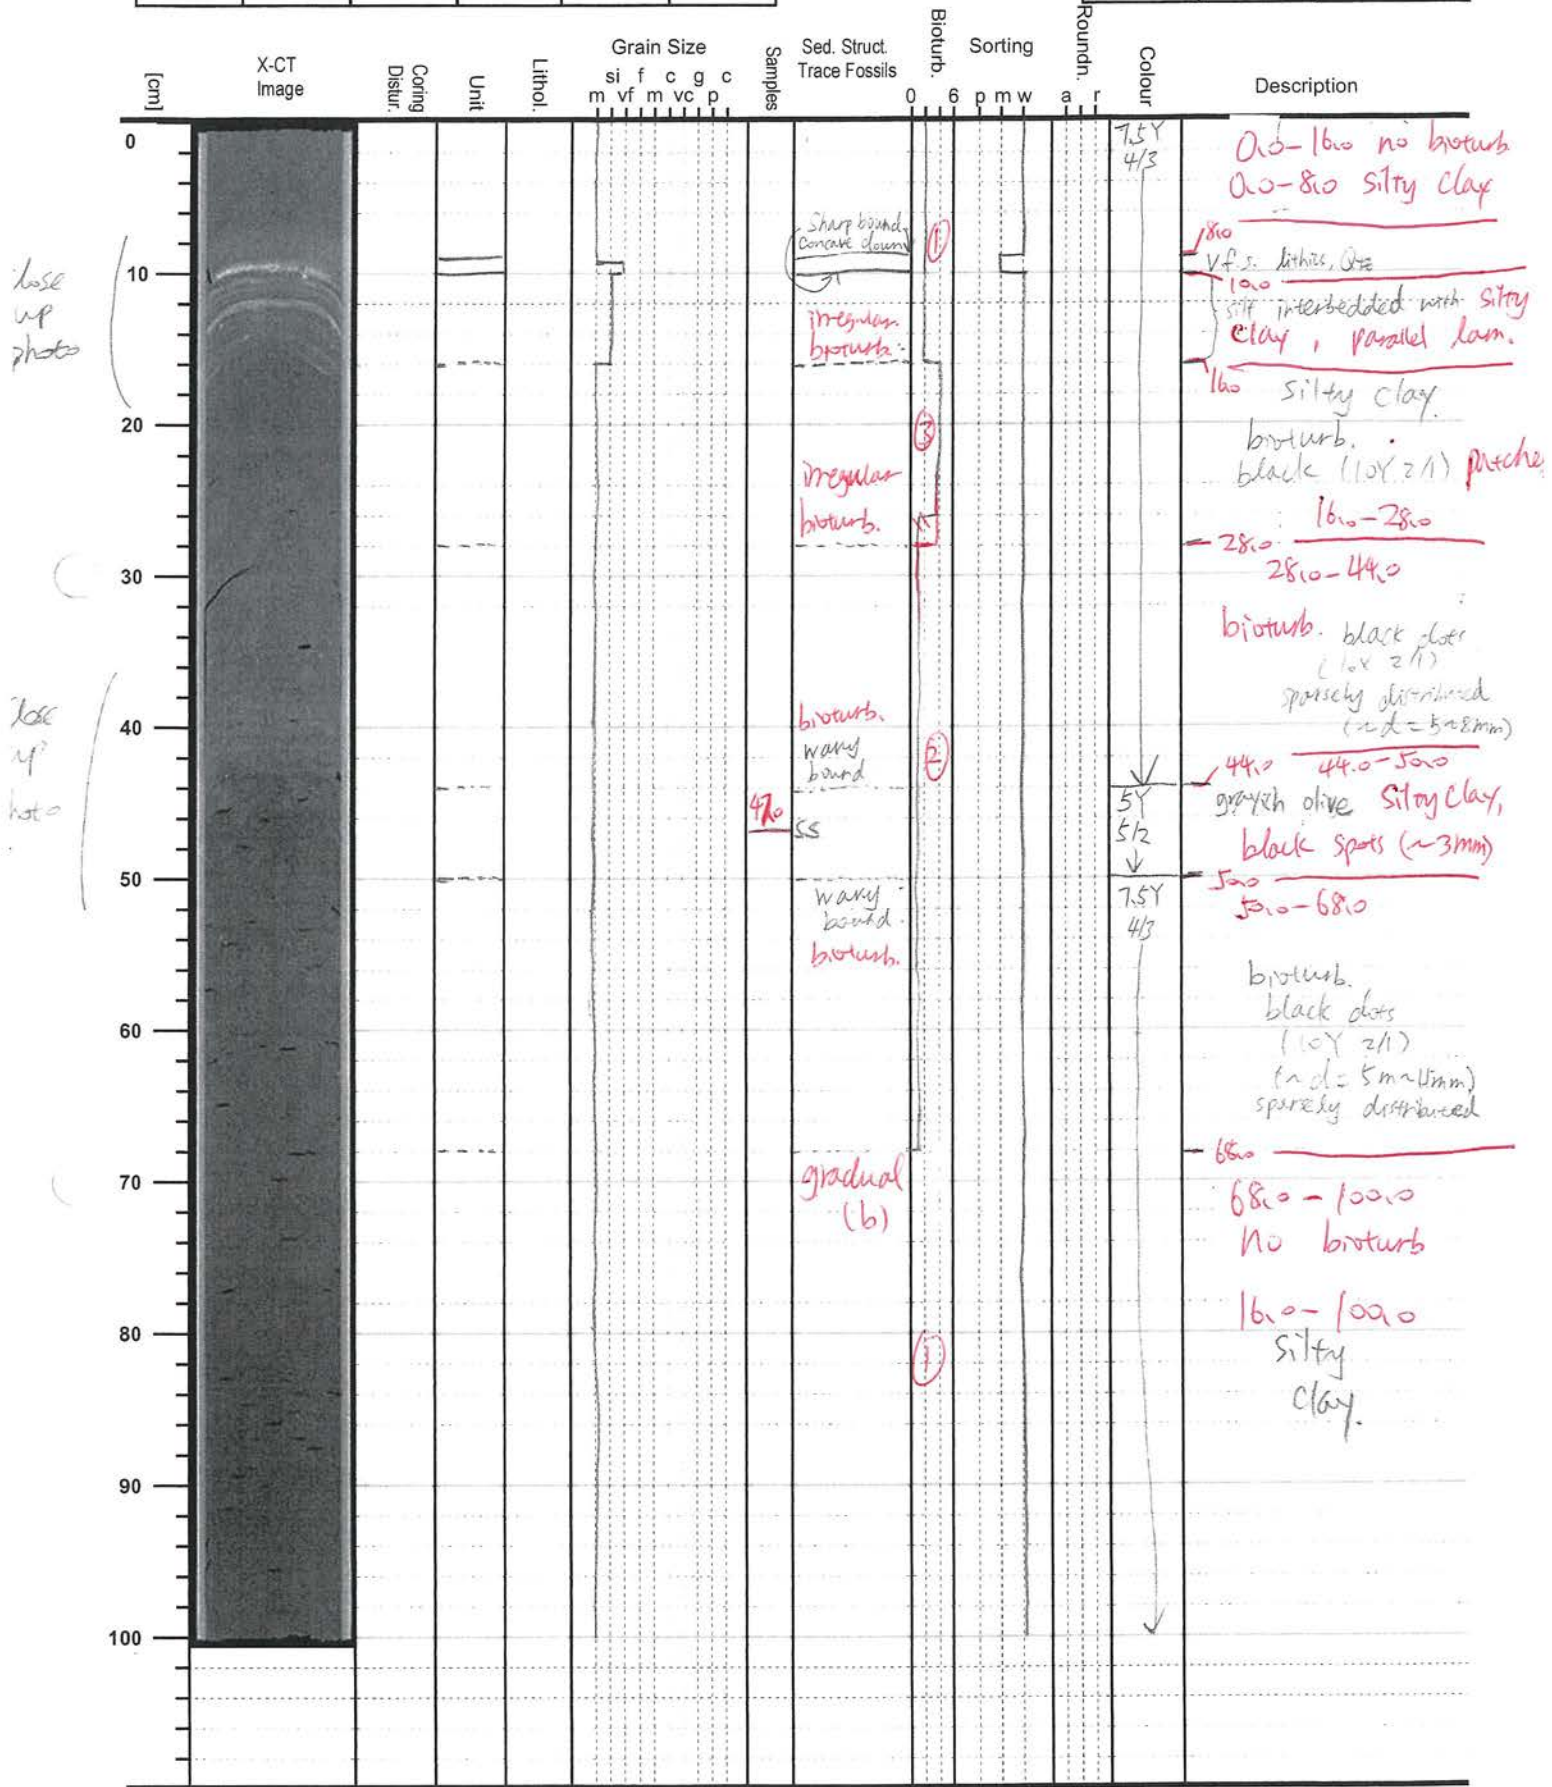 [cm]
X-CT
Image
Coring
Distur.
Unit
Lithol.
Grain Size
si f c g c
m vf m vc p
Samples
Sed. Struct.
Trace Fossils
Bioturb.
0 6
Sorting
p m w
Roundn.
a r
Colour
Description
0
10
20
30
40
50
60
70
80
90
100
up
photo
Sharp bound
Concave down
irregular
bioturb.
irregular
bioturb.
bioturb.
wavy
bound
47.0
SS
wavy
bound.
bioturb.
gradual
(b)
1
3
2
1
7.5Y
4/3
5Y
5/2
7.5Y
4/3
0.0-16.0 no bioturb
0.0-8.0 Silty Clay
8.0
v.f.s. lithics, Qtz
10.0
silt interbedded with Silty
Clay, parallel lam.
16.0
Silty clay.
bioturb.
black (10Y 2/1) patche
16.0-28.0
28.0
28.0-44.0
bioturb. black dots
(10Y 2/1)
sparsely distributed
(~d=5~8mm)
44.0 44.0-50.0
grayish olive Silty Clay,
black spots (~3mm)
50.0
50.0-68.0
bioturb.
black dots
(10Y 2/1)
sparsely distributed
68.0
68.0-100.0
no bioturb
16.0-100.0
Silty
Clay.